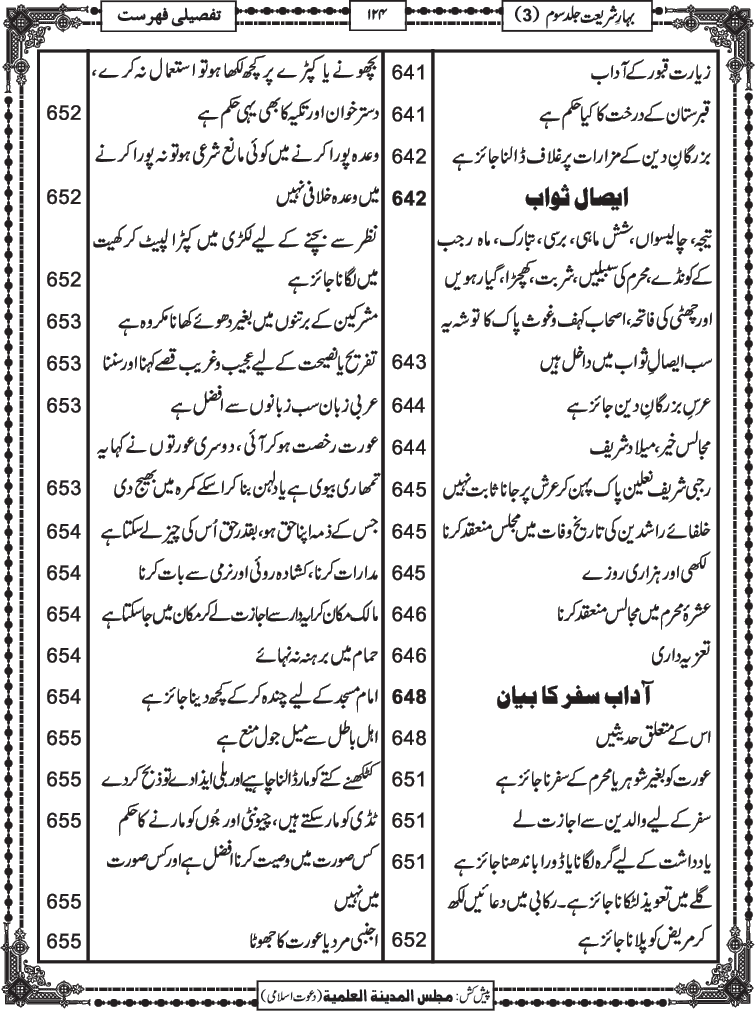 بہارِ شریعت جلد سوم (3)
۱۲۴
تفصیلی فہرست
زیارت قبور کے آداب 641
قبرستان کے درخت کا کیا حکم ہے 641
بزرگانِ دین کے مزارات پر غلاف ڈالنا جائز ہے 642
ایصال ثواب 642
تیجہ، چالیسواں، شش ماہی، برسی، تبارک، ماہ رجب
کے کونڈے، محرم کی سبیلیں، شربت، کھچڑا، گیارھویں
اور چھٹی کی فاتحہ، اصحاب کہف و غوث پاک کا توشہ یہ
سب ایصالِ ثواب میں داخل ہیں 643
عرس بزرگانِ دین جائز ہے 644
مجالس خیر، میلاد شریف 644
رجبی شریف نعلین پاک پہن کر عرش پر جانا ثابت نہیں 645
خلفائے راشدین کی تاریخ وفات میں مجلس منعقد کرنا 645
لکھی اور ہزاری روزے 645
عشرۂ محرم میں مجالس منعقد کرنا 646
تعزیہ داری 646
آداب سفر کا بیان 648
اس کے متعلق حدیثیں 648
عورت کو بغیر شوہر یا محرم کے سفر ناجائز ہے 651
سفر کے لیے والدین سے اجازت لے 651
یادداشت کے لیے گرہ لگانا یا ڈورا باندھنا جائز ہے 651
گلے میں تعویذ لٹکانا جائز ہے۔ رکابی میں دعائیں لکھ
کر مریض کو پلانا جائز ہے 652
بچھونے یا کپڑے پر کچھ لکھا ہو تو استعمال نہ کرے،
دسترخوان اور تکیہ کا بھی یہی حکم ہے 652
وعدہ پورا کرنے میں کوئی مانع شرعی ہو تو نہ پورا کرنے
میں وعدہ خلافی نہیں 652
نظر سے بچنے کے لیے لکڑی میں کپڑا لپیٹ کر کھیت
میں لگانا جائز ہے 652
مشرکین کے برتنوں میں بغیر دھوئے کھانا مکروہ ہے 653
تفریح یا نصیحت کے لیے عجیب و غریب قصے کہنا اور سننا 653
عربی زبان سب زبانوں سے افضل ہے 653
عورت رخصت ہو کر آئی، دوسری عورتوں نے کہا یہ
تمھاری بیوی ہے یا دلہن بنا کر اسکے کمرہ میں بھیج دی 653
جس کے ذمہ اپنا حق ہو، بقدر حق اُس کی چیز لے سکتا ہے 654
مدارات کرنا، کشادہ روئی اور نرمی سے بات کرنا 654
مالک مکان کرایہ دار سے اجازت لے کر مکان میں جا سکتا ہے 654
حمام میں برہنہ نہ نہائے 654
امام مسجد کے لیے چندہ کر کے کچھ دینا جائز ہے 654
اہل باطل سے میل جول منع ہے 655
کٹکھنے کتے کو مار ڈالنا چاہیے اور بلی ایذا دے تو ذبح کر دے 655
ٹڈی کو مار سکتے ہیں، چیونٹی اور جُوں کو مارنے کا حکم 655
کس صورت میں وصیت کرنا افضل ہے اور کس صورت
میں نہیں 655
اجنبی مرد یا عورت کا جھوٹا 655
پیش کش: مجلس المدینة العلمیة (دعوت اسلامی)